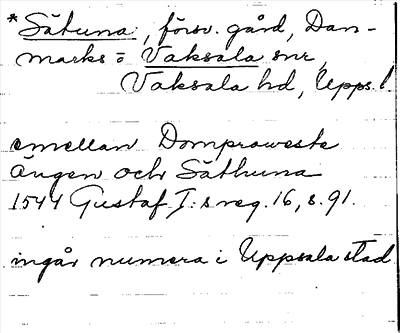 *Sätuna, försv. gård, Dan-
marks o Vaksala snr,
Vaksala hd, Upps. l
emellan Domproweste
Ängen och Säthuna
1544 Gustaf I:s reg. 16, s. 91.
ingår numera i Uppsala stad